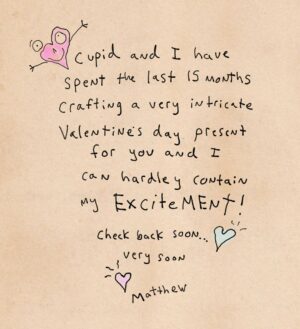 Cupid and I have
spent the last 15 months
crafting a very intricate
Valentine's day present
for you and I
can hardley contain
my EXCITEMENT!
Check back soon...
very soon
Matthew